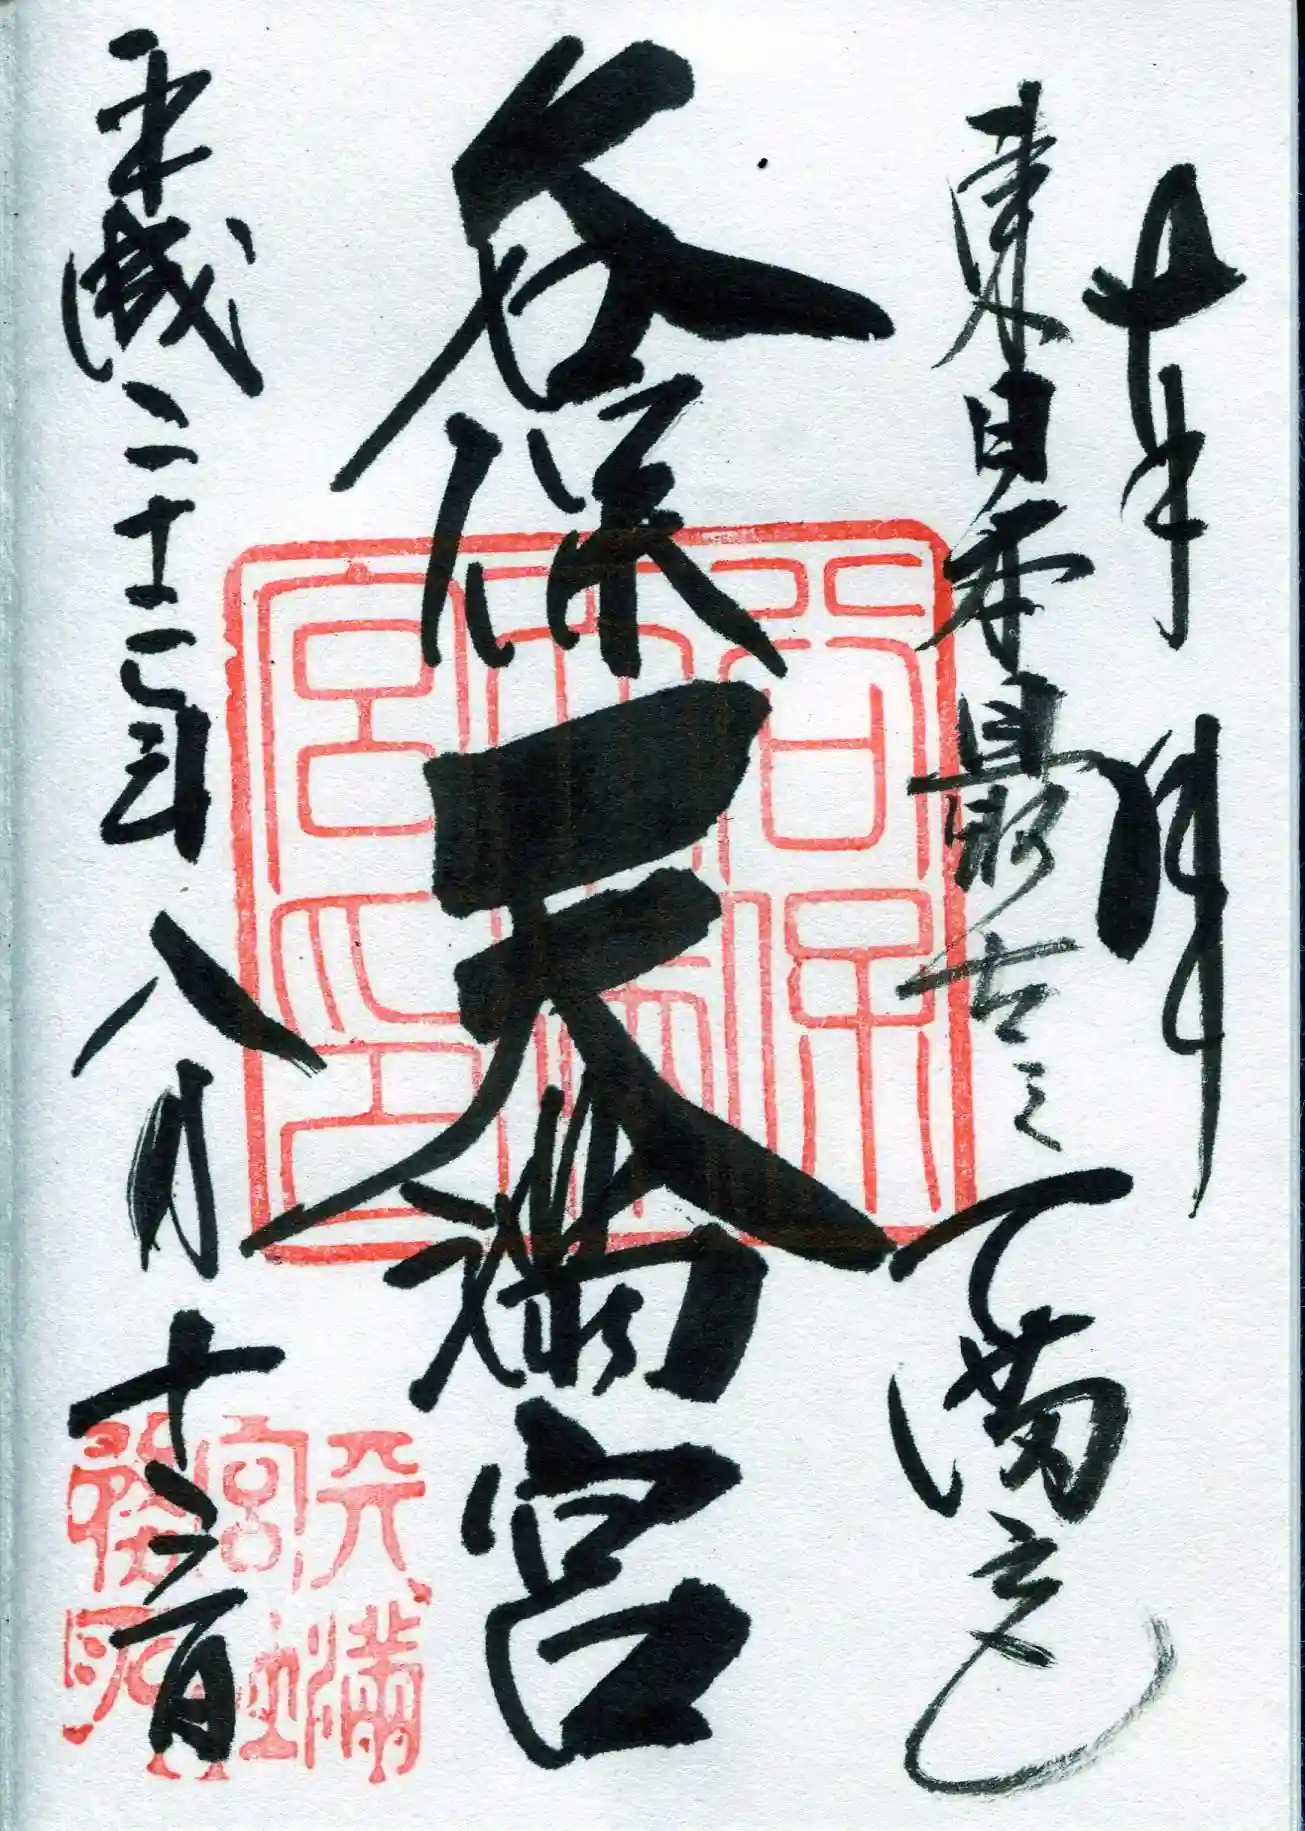 奉拝
東日本最古之天満宮
谷保天満宮
平成二十二年八月十二日
谷保
天満
宮印
天満
宮社
務所